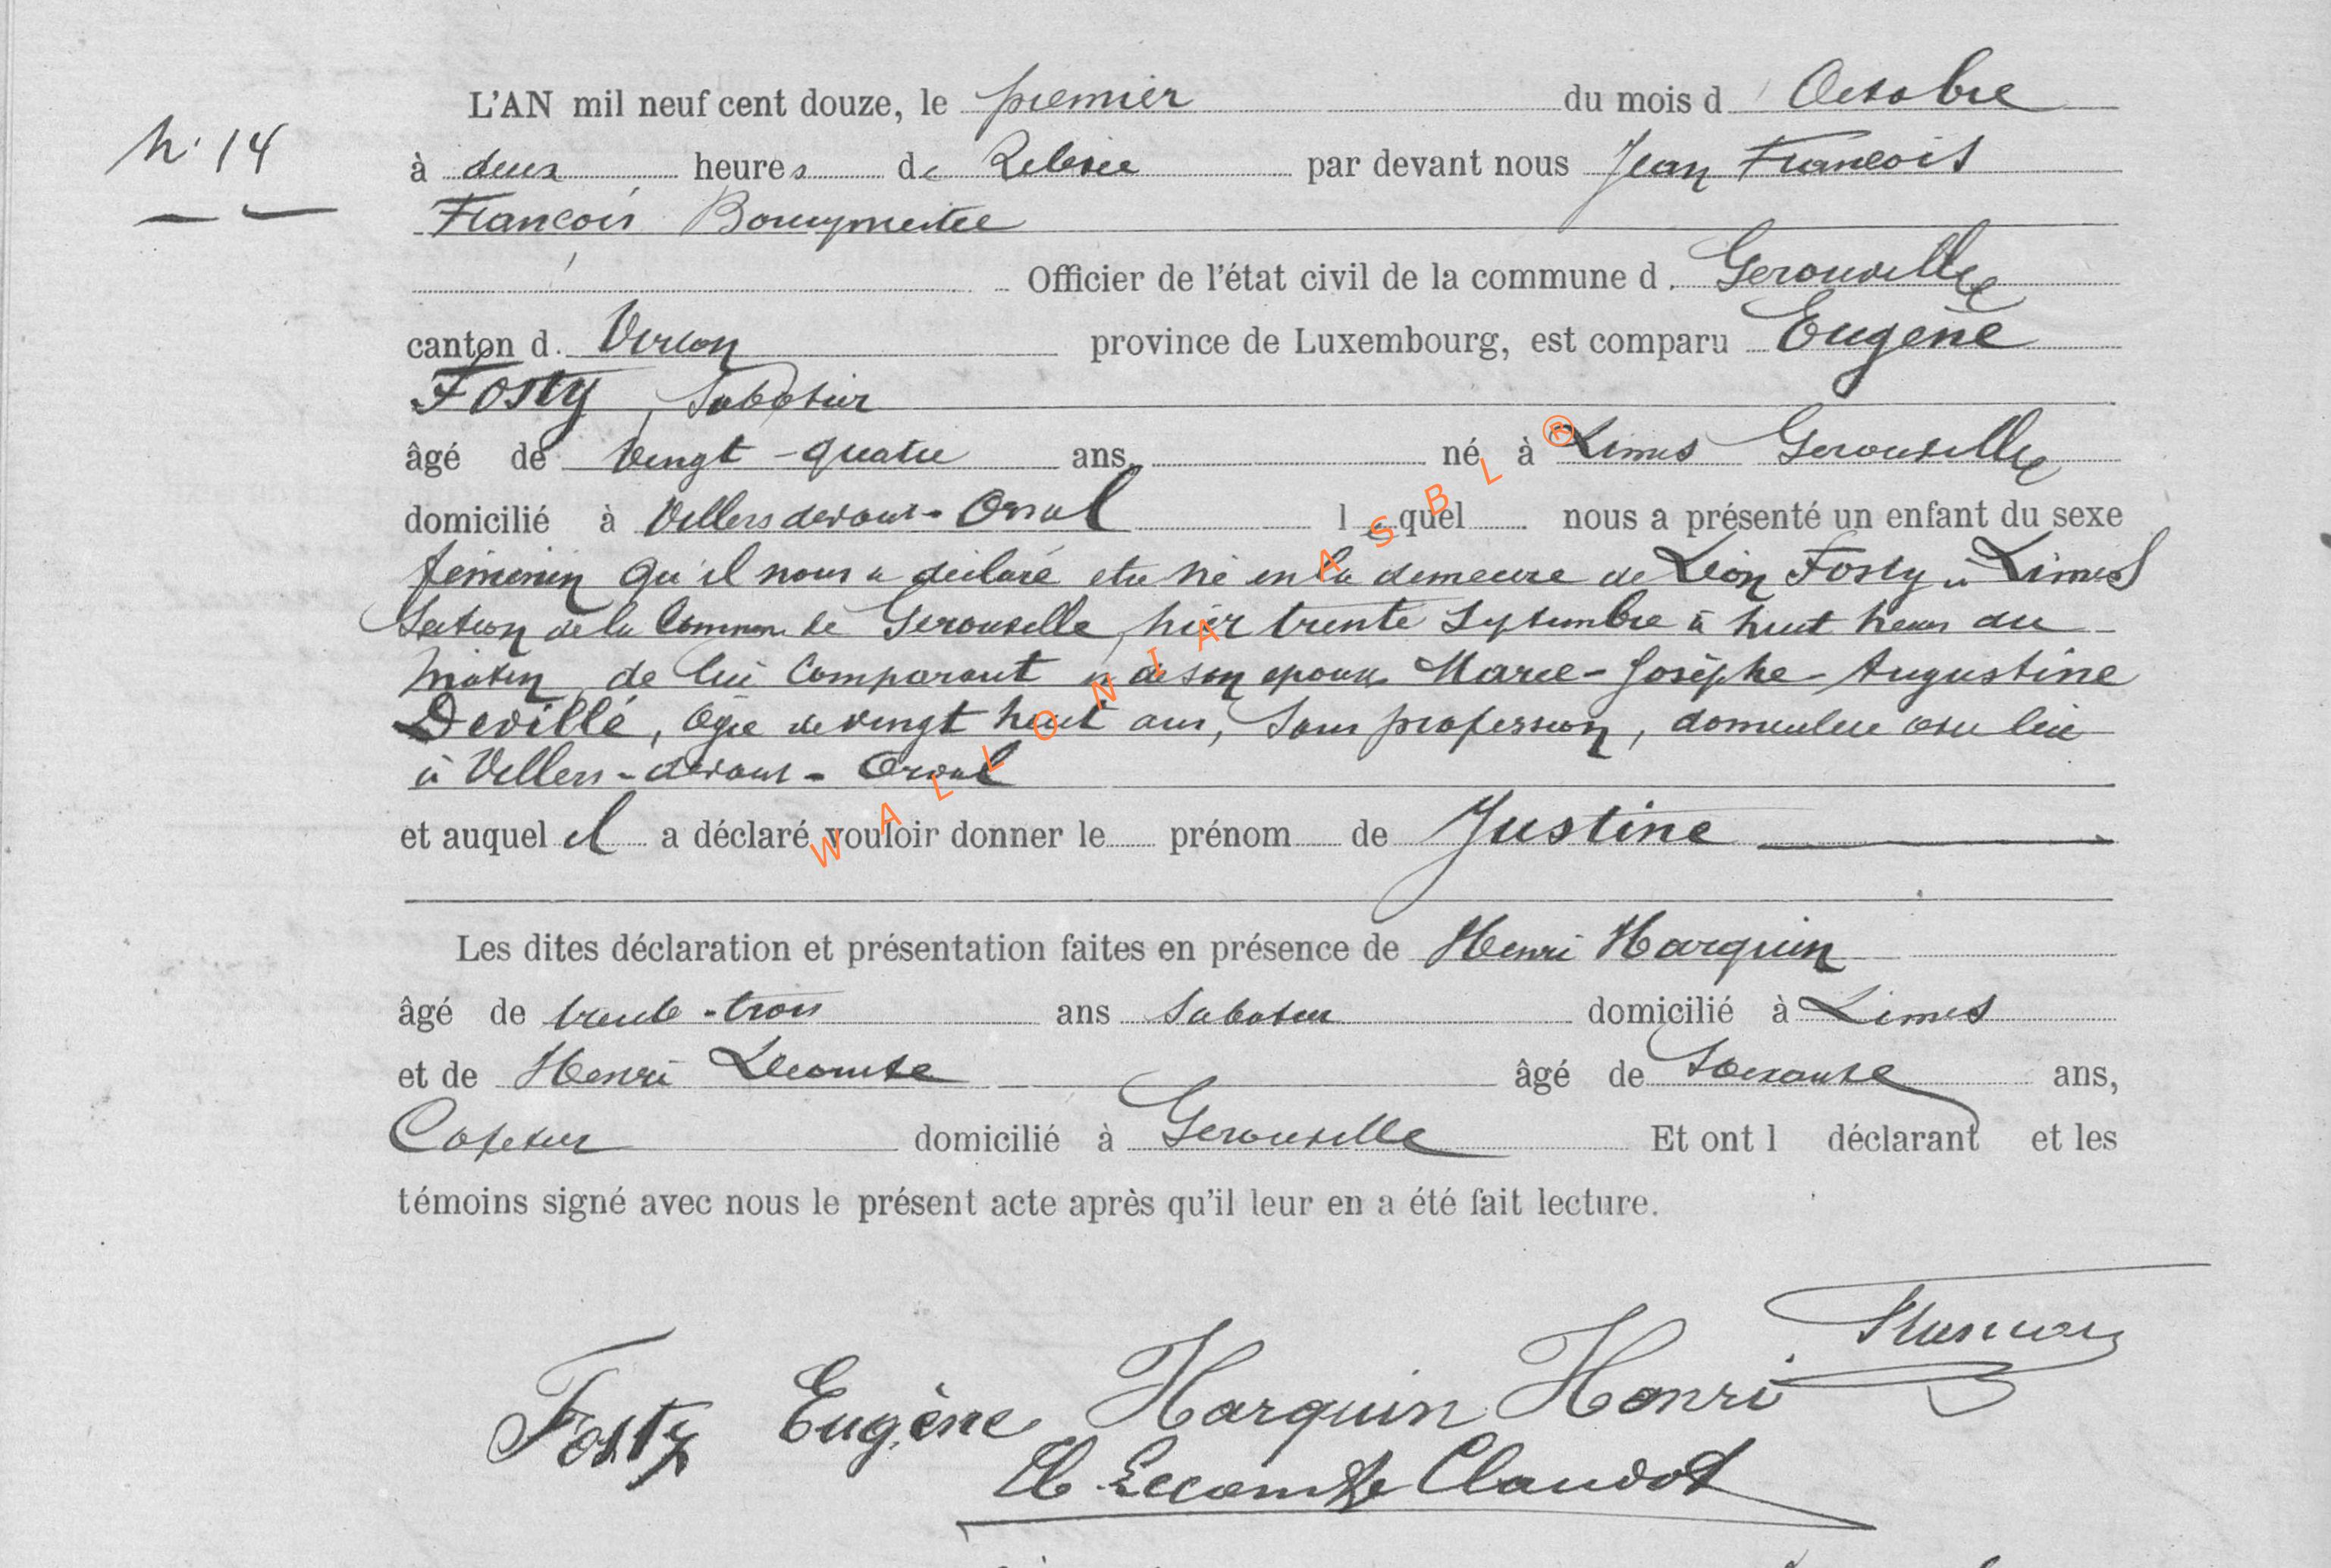 N. 14
L'AN mil neuf cent douze, le premier du mois d' Octobre
à deux heures de Relevée par devant nous Jean François
François Bourgmestre
Officier de l'état civil de la commune d. Gerouville
canton d. Virton province de Luxembourg, est comparu Eugène
Fosty, Sabotier
âgé de vingt-quatre ans né à Limes Gerouville
domicilié à Villers devant-Orval lequel nous a présenté un enfant du sexe
féminin qu'il nous a déclaré etre né en la demeure de Léon Fosty à Limes
Section de la Commune de Gerouville, hier trente Septembre à huit heures du
matin, de lui Comparant et de son epouse Marie-Josèphe-Augustine
Devillé, agée de vingt huit ans, sans profession, domiciliée avec lui
à Villers-devant-Orval
et auquel il a déclaré vouloir donner le prénom de Justine
Les dites déclaration et présentation faites en présence de Henri Harquin
âgé de trente-trois ans Sabotier domicilié à Limes
et de Henri Lecomte âgé de Soixante ans,
Cafetier domicilié à Gerouville Et ont l déclarant et les
témoins signé avec nous le présent acte après qu'il leur en a été fait lecture.
Fosty Eugène Harquin Henri
H Lecomte Claudot
WALLONIA ASBL ®